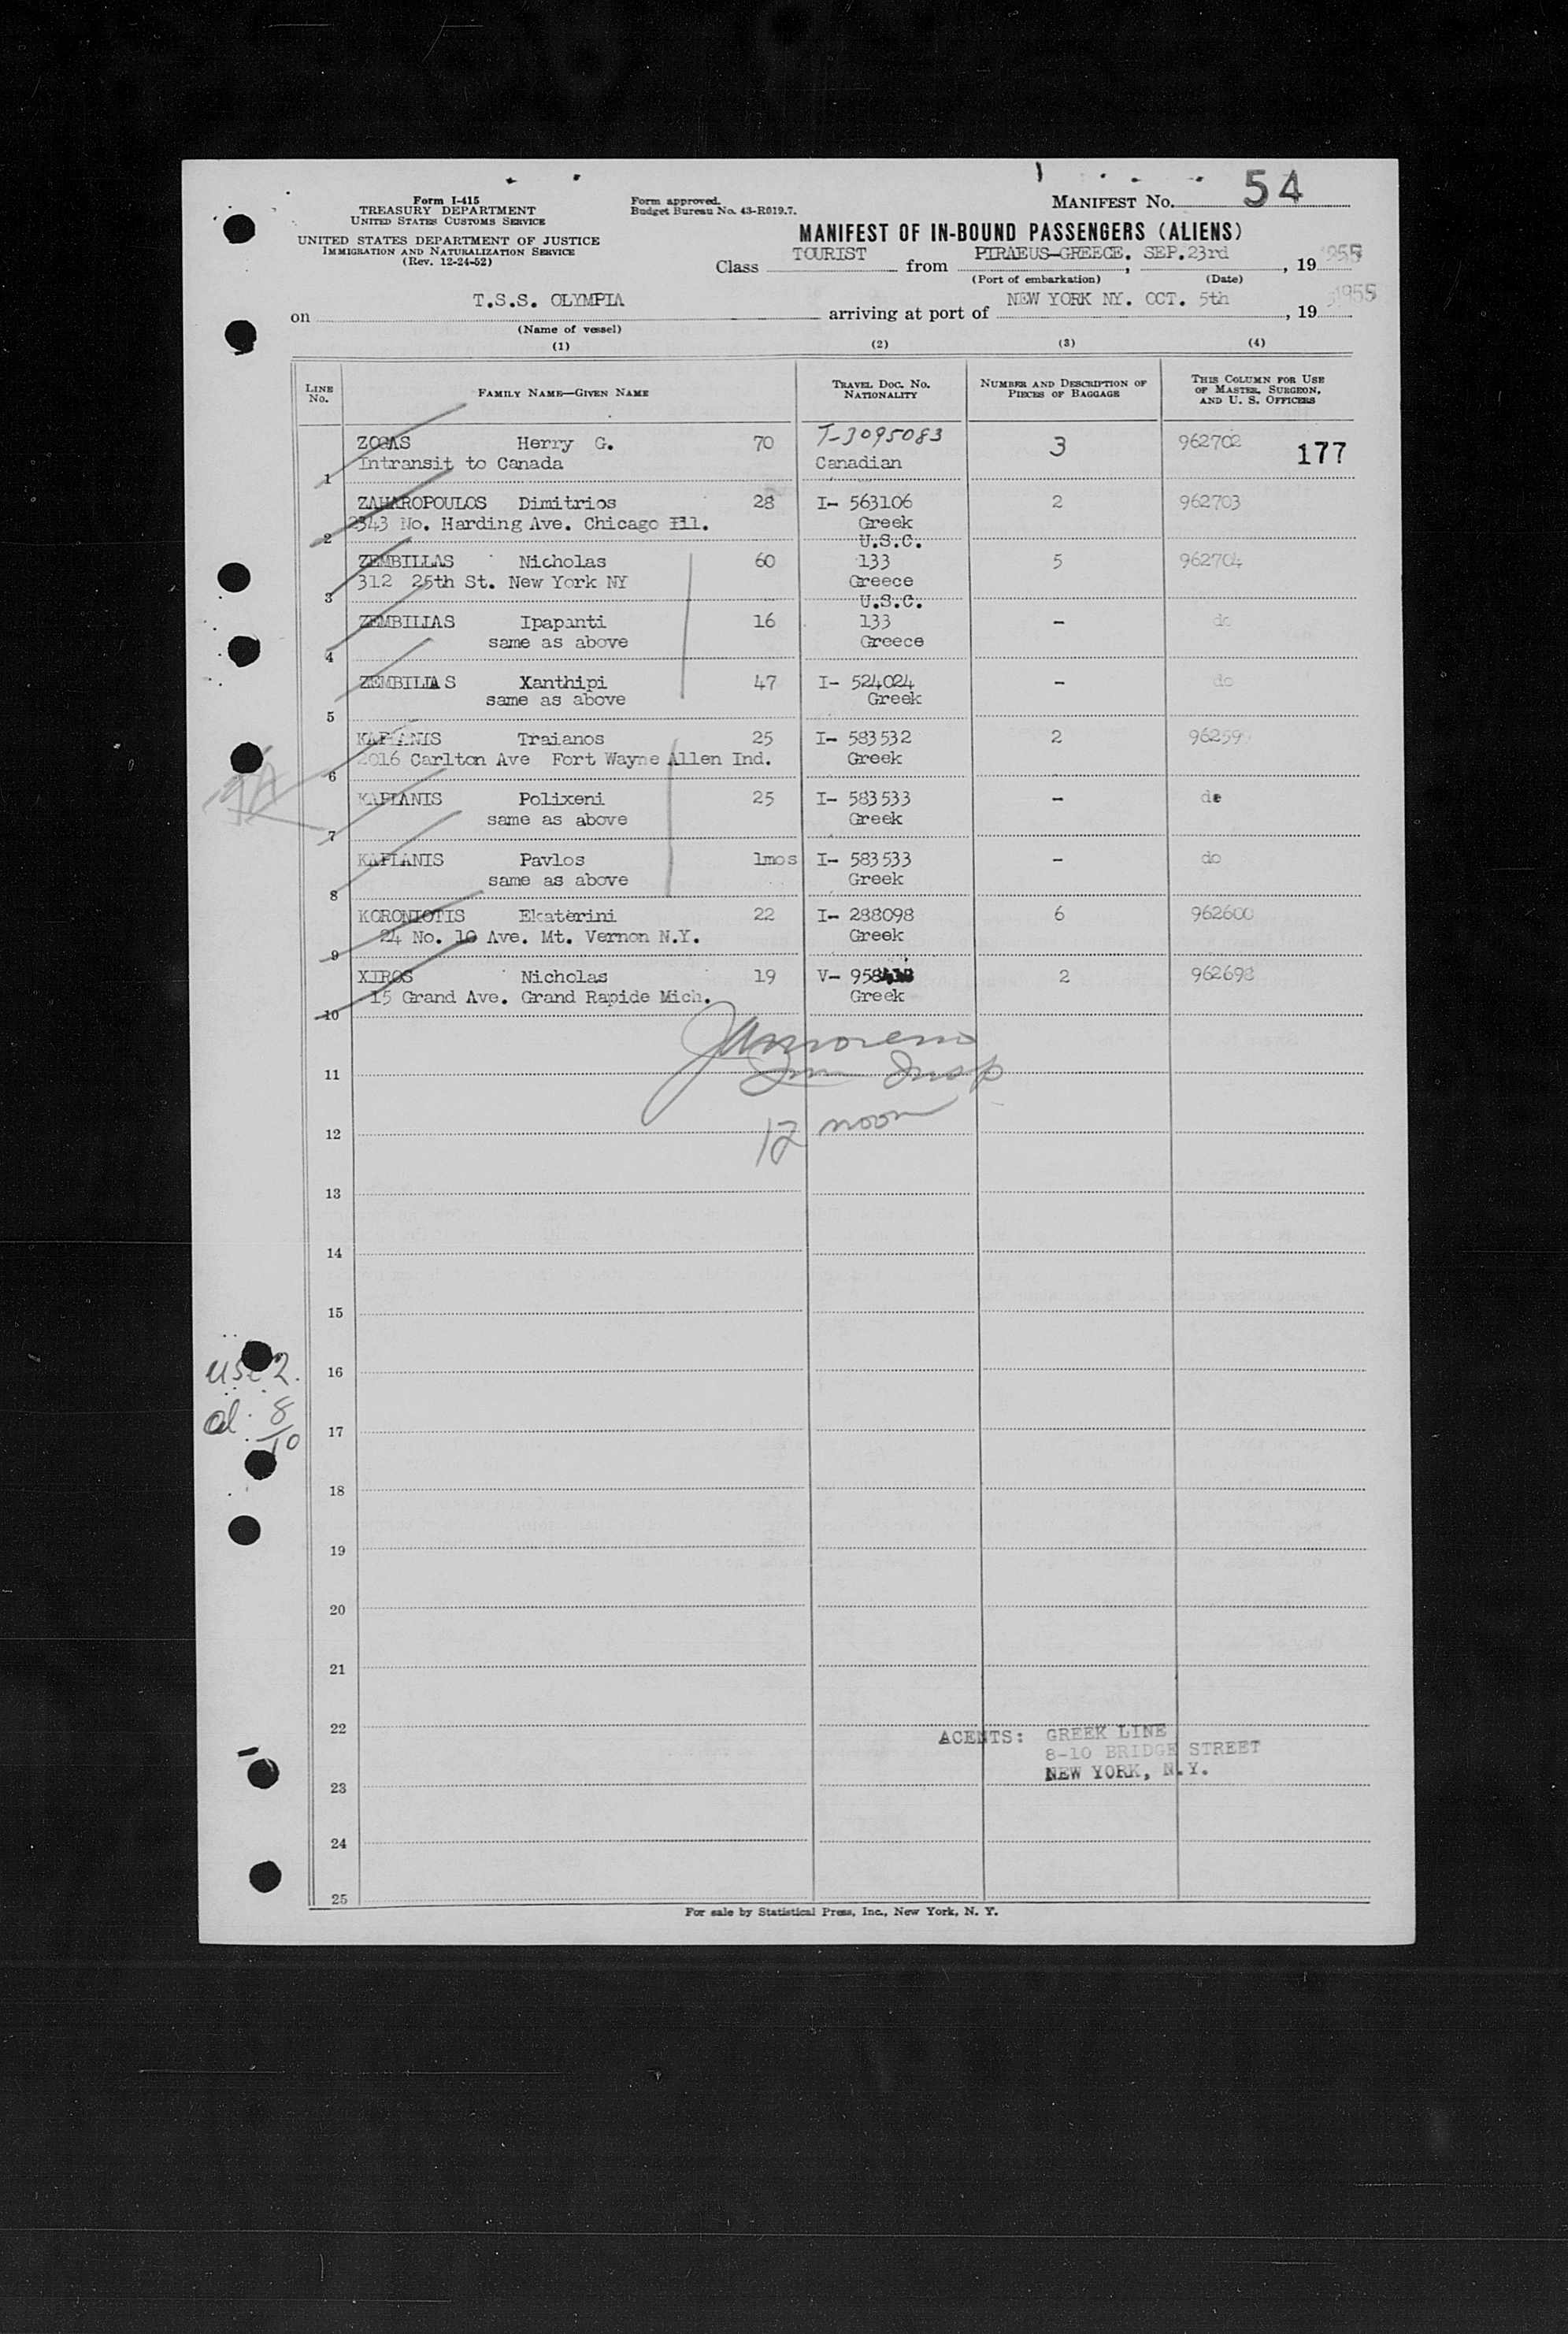 Form I-415
TREASURY DEPARTMENT
UNITED STATES CUSTOMS SERVICE
UNITED STATES DEPARTMENT OF JUSTICE
IMMIGRATION AND NATURALIZATION SERVICE
(Rev. 12-24-52)
Form approved.
Budget Bureau No. 43-R019.7.
MANIFEST No. 54
MANIFEST OF IN-BOUND PASSENGERS (ALIENS)
Class TOURIST from PIRAEUS-GREECE. SEP.23rd, 19 955
(Port of embarkation) (Date)
on T.S.S. OLYMPIA arriving at port of NEW YORK NY. OCT. 5th, 19 1955
(Name of vessel)
(1) (2) (3) (4)
LINE No. FAMILY NAME—GIVEN NAME TRAVEL DOC. NO. NATIONALITY NUMBER AND DESCRIPTION OF PIECES OF BAGGAGE THIS COLUMN FOR USE OF MASTER, SURGEON, AND U. S. OFFICERS
ZOGAS Herry G. 70 T-3095083 3 962702 177
1 Intransit to Canada Canadian
ZAHAROPOULOS Dimitrios 28 I- 563106 2 962703
2 2343 No. Harding Ave. Chicago Ill. Greek
U.S.C.
ZEMBILLAS Nicholas 60 133 5 962704
3 312 25th St. New York NY Greece
U.S.C.
ZEMBILIAS Ipapanti 16 133 - do
4 same as above Greece
ZEMBILIAS Xanthipi 47 I- 524024 - do
5 same as above Greek
KAPLANIS Traianos 25 I- 583532 2 96259
6 2016 Carlton Ave Fort Wayne Allen Ind. Greek
KAPLANIS Polixeni 25 I- 583533 - do
7 same as above Greek
KAPLANIS Pavlos 1mos I- 583533 - do
8 same as above Greek
KORONIOTIS Ekaterini 22 I- 288098 6 962600
9 24 No. 10 Ave. Mt. Vernon N.Y. Greek
XIROS Nicholas 19 V- 958 2 962698
10 15 Grand Ave. Grand Rapide Mich. Greek
11 Imm Insp
12 12 noon
13
14
15
16
usc 2.
al: 8
17
10
18
19
20
21
22
AGENTS: GREEK LINE
8-10 BRIDGE STREET
NEW YORK, N.Y.
23
24
25
For sale by Statistical Press, Inc., New York, N. Y.